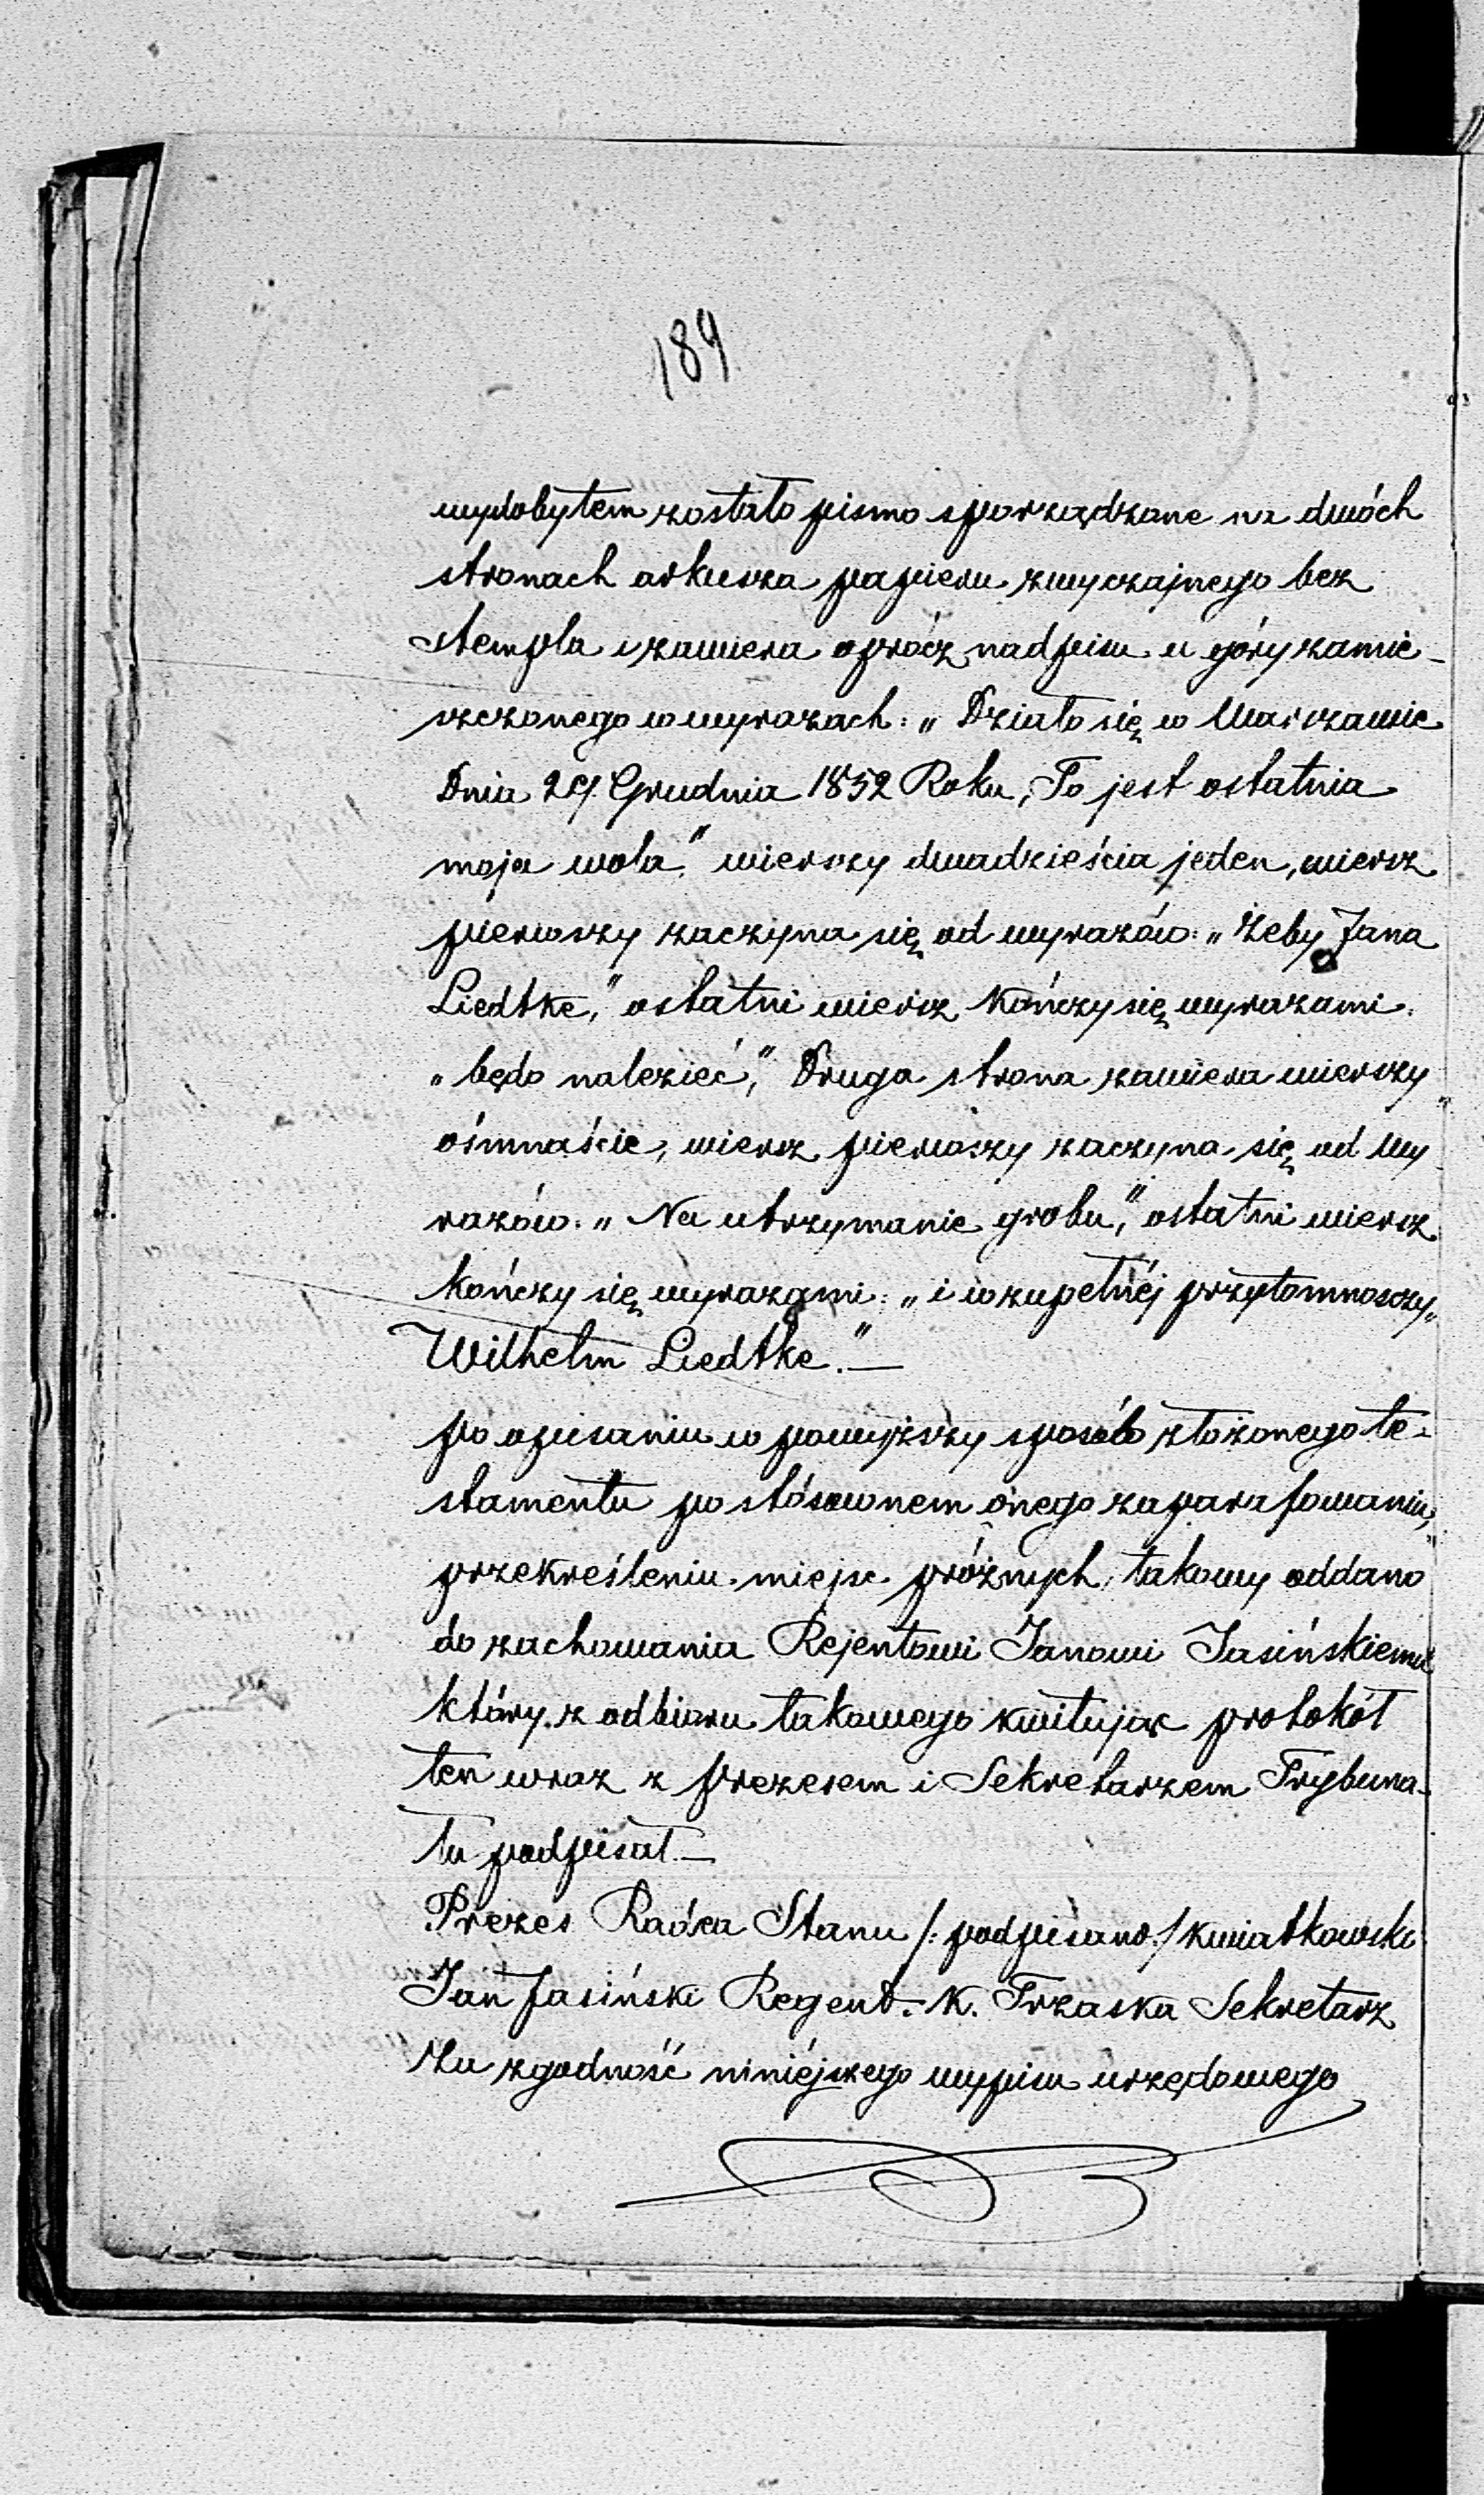 189
wydobytem zostało pismo sporządzone na dwóch
stronach arkusza papieru zwyczajnego bez
stempla i zawiera oprócz nadpisu u góry zamie-
szczonego w wyrazach: „Działo się w Warszawie
Dnia 29 Grudnia 1852 Roku, To jest ostatnia
moja wola" wierszy dwadzieścia jeden, wiersz
pierwszy zaczyna się od wyrazów: „żeby Jana
Liedtke," ostatni wiersz kończy się wyrazami:
„będo nalezieć," Druga strona zawiera wierszy
ośmnaście, wiersz pierwszy zaczyna się od wy
razów: „Na utrzymanie grobu," ostatni wiersz
kończy się wyrazami: „i w zupełnéj przytomnosczy„
Wilhelm Liedtke."—
po opisaniu w powyższy sposób złożonego te-
stamentu po stósownem onego zaparafowaniu,
przekreśleniu miejsc próżnych, takowy oddano
do zachowania Rejentowi Janowi Jasińskiemu
który z odbioru takowego kwitując protokół
ten wraz z prezesem i Sekretarzem Trybuna-
łu podpisał.—
Prezes Radca Stanu /: podpisano:/ Kwiatkowski
Jan Jasiński Regent.- K. Trzaska Sekretarz
Za zgodność niniéjszego wypisu urzędowego